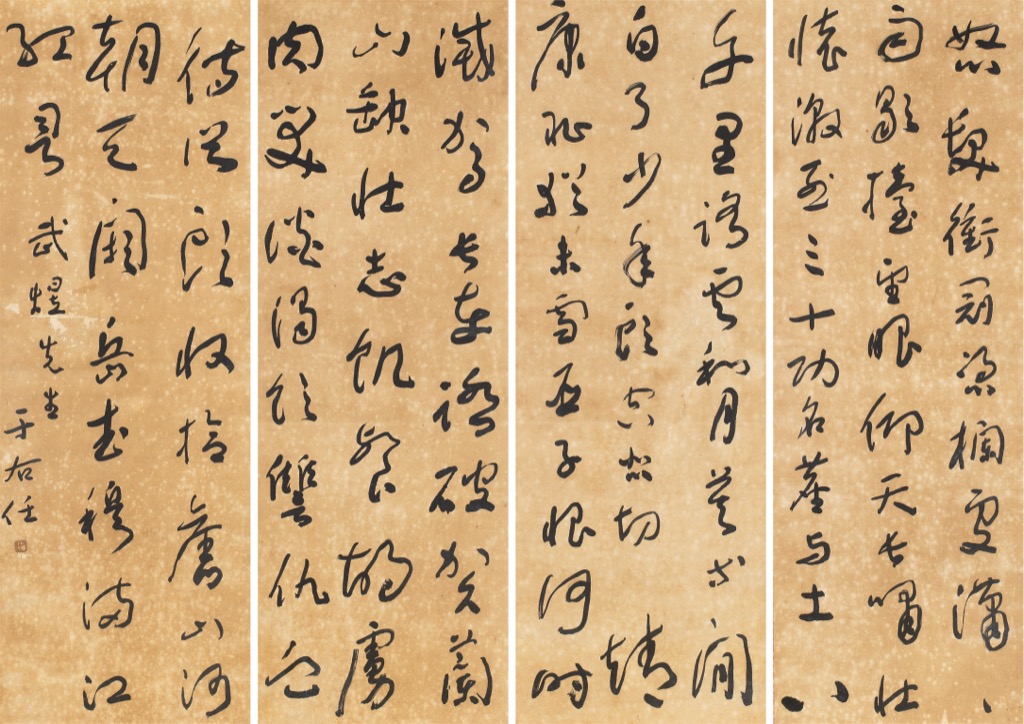 怒髮衝冠憑欄處瀟、
雨歇擡望眼仰天長嘯壯
懷激烈三十功名塵与土八
千里路雲和月莫等閒
白了少年頭空悲切靖
康恥猶未雪臣子恨何時
滅駕長車踏破賀蘭
山缺壯志飢餐胡虜
肉笑談渴飲讐仇血
待從頭收拾舊山河
朝天闕岳武穆滿江
紅
武煜先生
于右任